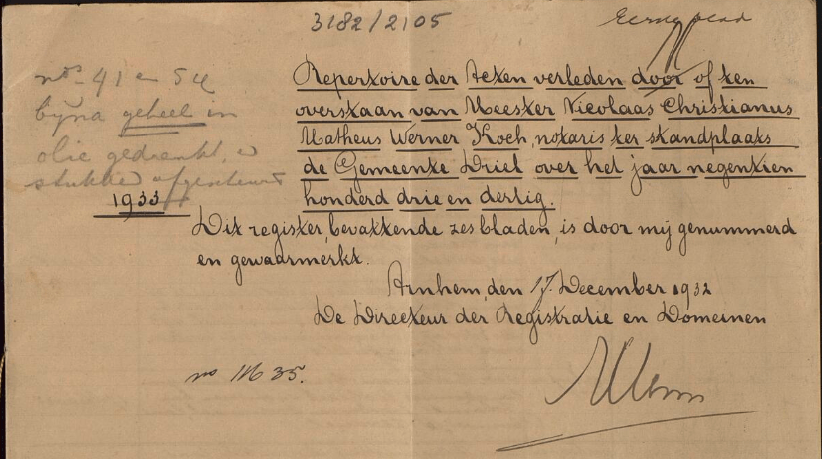 3182/2105
nos. 41 en 54
byna geheel in
olie gedrenkt, en
stukken afgescheurd
1933
Repertoire der Acten verleden door of ten
overstaan van Meester Nicolaas Christianus
Matheus Werner Koch, notaris ter standplaats
de Gemeente Driel over het jaar negentien
honderd drie en dertig.
Dit register, bevattende zes bladen, is door mij genummerd
en gewaarmerkt.
Arnhem, den 17. December 1932
De Directeur der Registratie en Domeinen
no 1135.